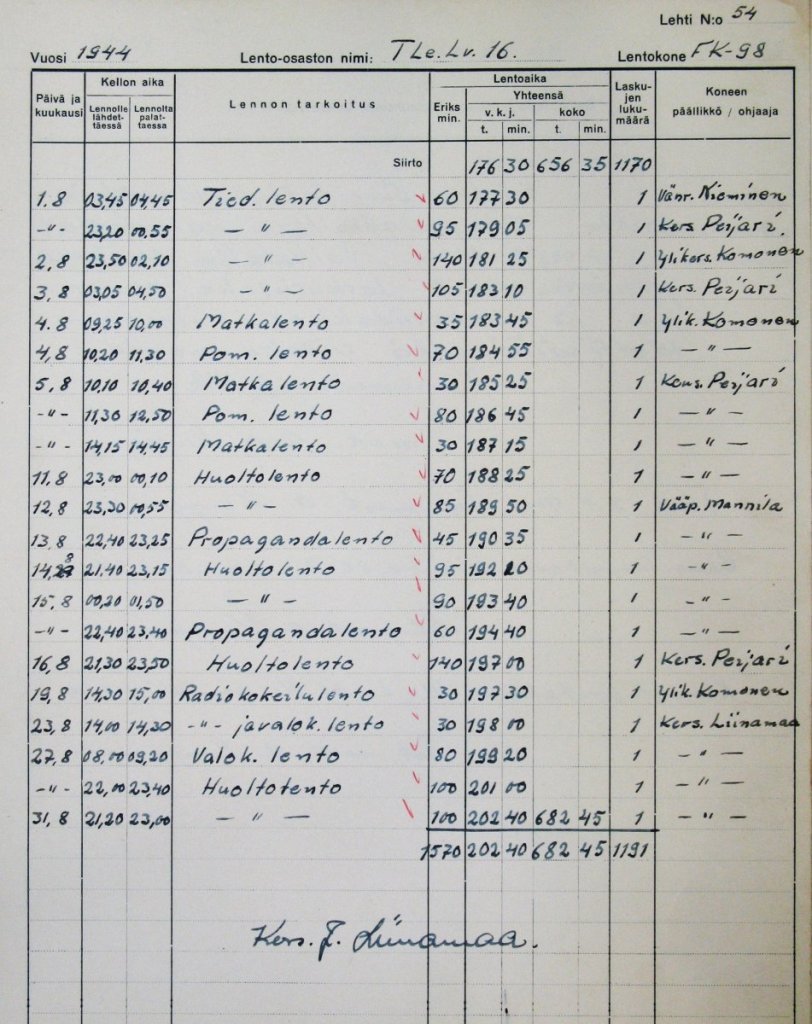 Lehti N:o 54
Vuosi 1944 Lento-osaston nimi: TLe.Lv. 16. Lentokone FK-98
Päivä ja kuukausi Kellon aika Lennolle lähdettäessä Lennolta palattaessa Lennon tarkoitus Lentoaika Eriks min. Yhteensä v. k. j. t. min. koko t. min. Laskujen lukumäärä Koneen päällikkö / ohjaaja
Siirto 176 30 656 35 1170
1.8 03,45 04,45 Tied. lento 60 177 30 1 Vänr. Nieminen
-"- 23,20 00,55 — " — 95 179 05 1 Kers. Perjari.
2,8 23,50 02,10 — " — 140 181 25 1 Ylikers. Komonen
3,8 03,05 04,50 — " — 105 183 10 1 Kers. Perjari
4.8 09,25 10,00 Matkalento 35 183 45 1 Ylik. Komonen
4,8 10,20 11,30 Pom. lento 70 184 55 1 — " —
5,8 10,10 10,40 Matkalento 30 185 25 1 Kers. Perjari
-"- 11,30 12,50 Pom. lento 80 186 45 1 — " —
-"- 14,15 14,45 Matkalento 30 187 15 1 — " —
11,8 23,00 00,10 Huoltolento 70 188 25 1 — " —
12,8 23,30 00,55 — " — 85 189 50 1 Vääp. Mannila
13,8 22,40 23,25 Propagandalento 45 190 35 1 — " —
14,8 21,40 23,15 Huoltolento 95 192 10 1 — " —
15,8 00,20 01,50 — " — 90 193 40 1 — " —
-"- 22,40 23,40 Propagandalento 60 194 40 1 — " —
16,8 21,30 23,50 Huoltolento 140 197 00 1 Kers. Perjari
19,8 14,30 15,00 Radiokokeilulento 30 197 30 1 Ylik. Komonen
23,8 14,00 14,30 -"- javalok. lento 30 198 00 1 Kers. Liinamaa
27,8 08,00 09,20 Valok. lento 80 199 20 1 — " —
-"- 22,00 23,40 Huoltotento 100 201 00 1 — " —
31,8 21,20 23,00 — " — 100 202 40 682 45 1 — " —
1570 202 40 682 45 1191
Kers. J. Liinamaa.